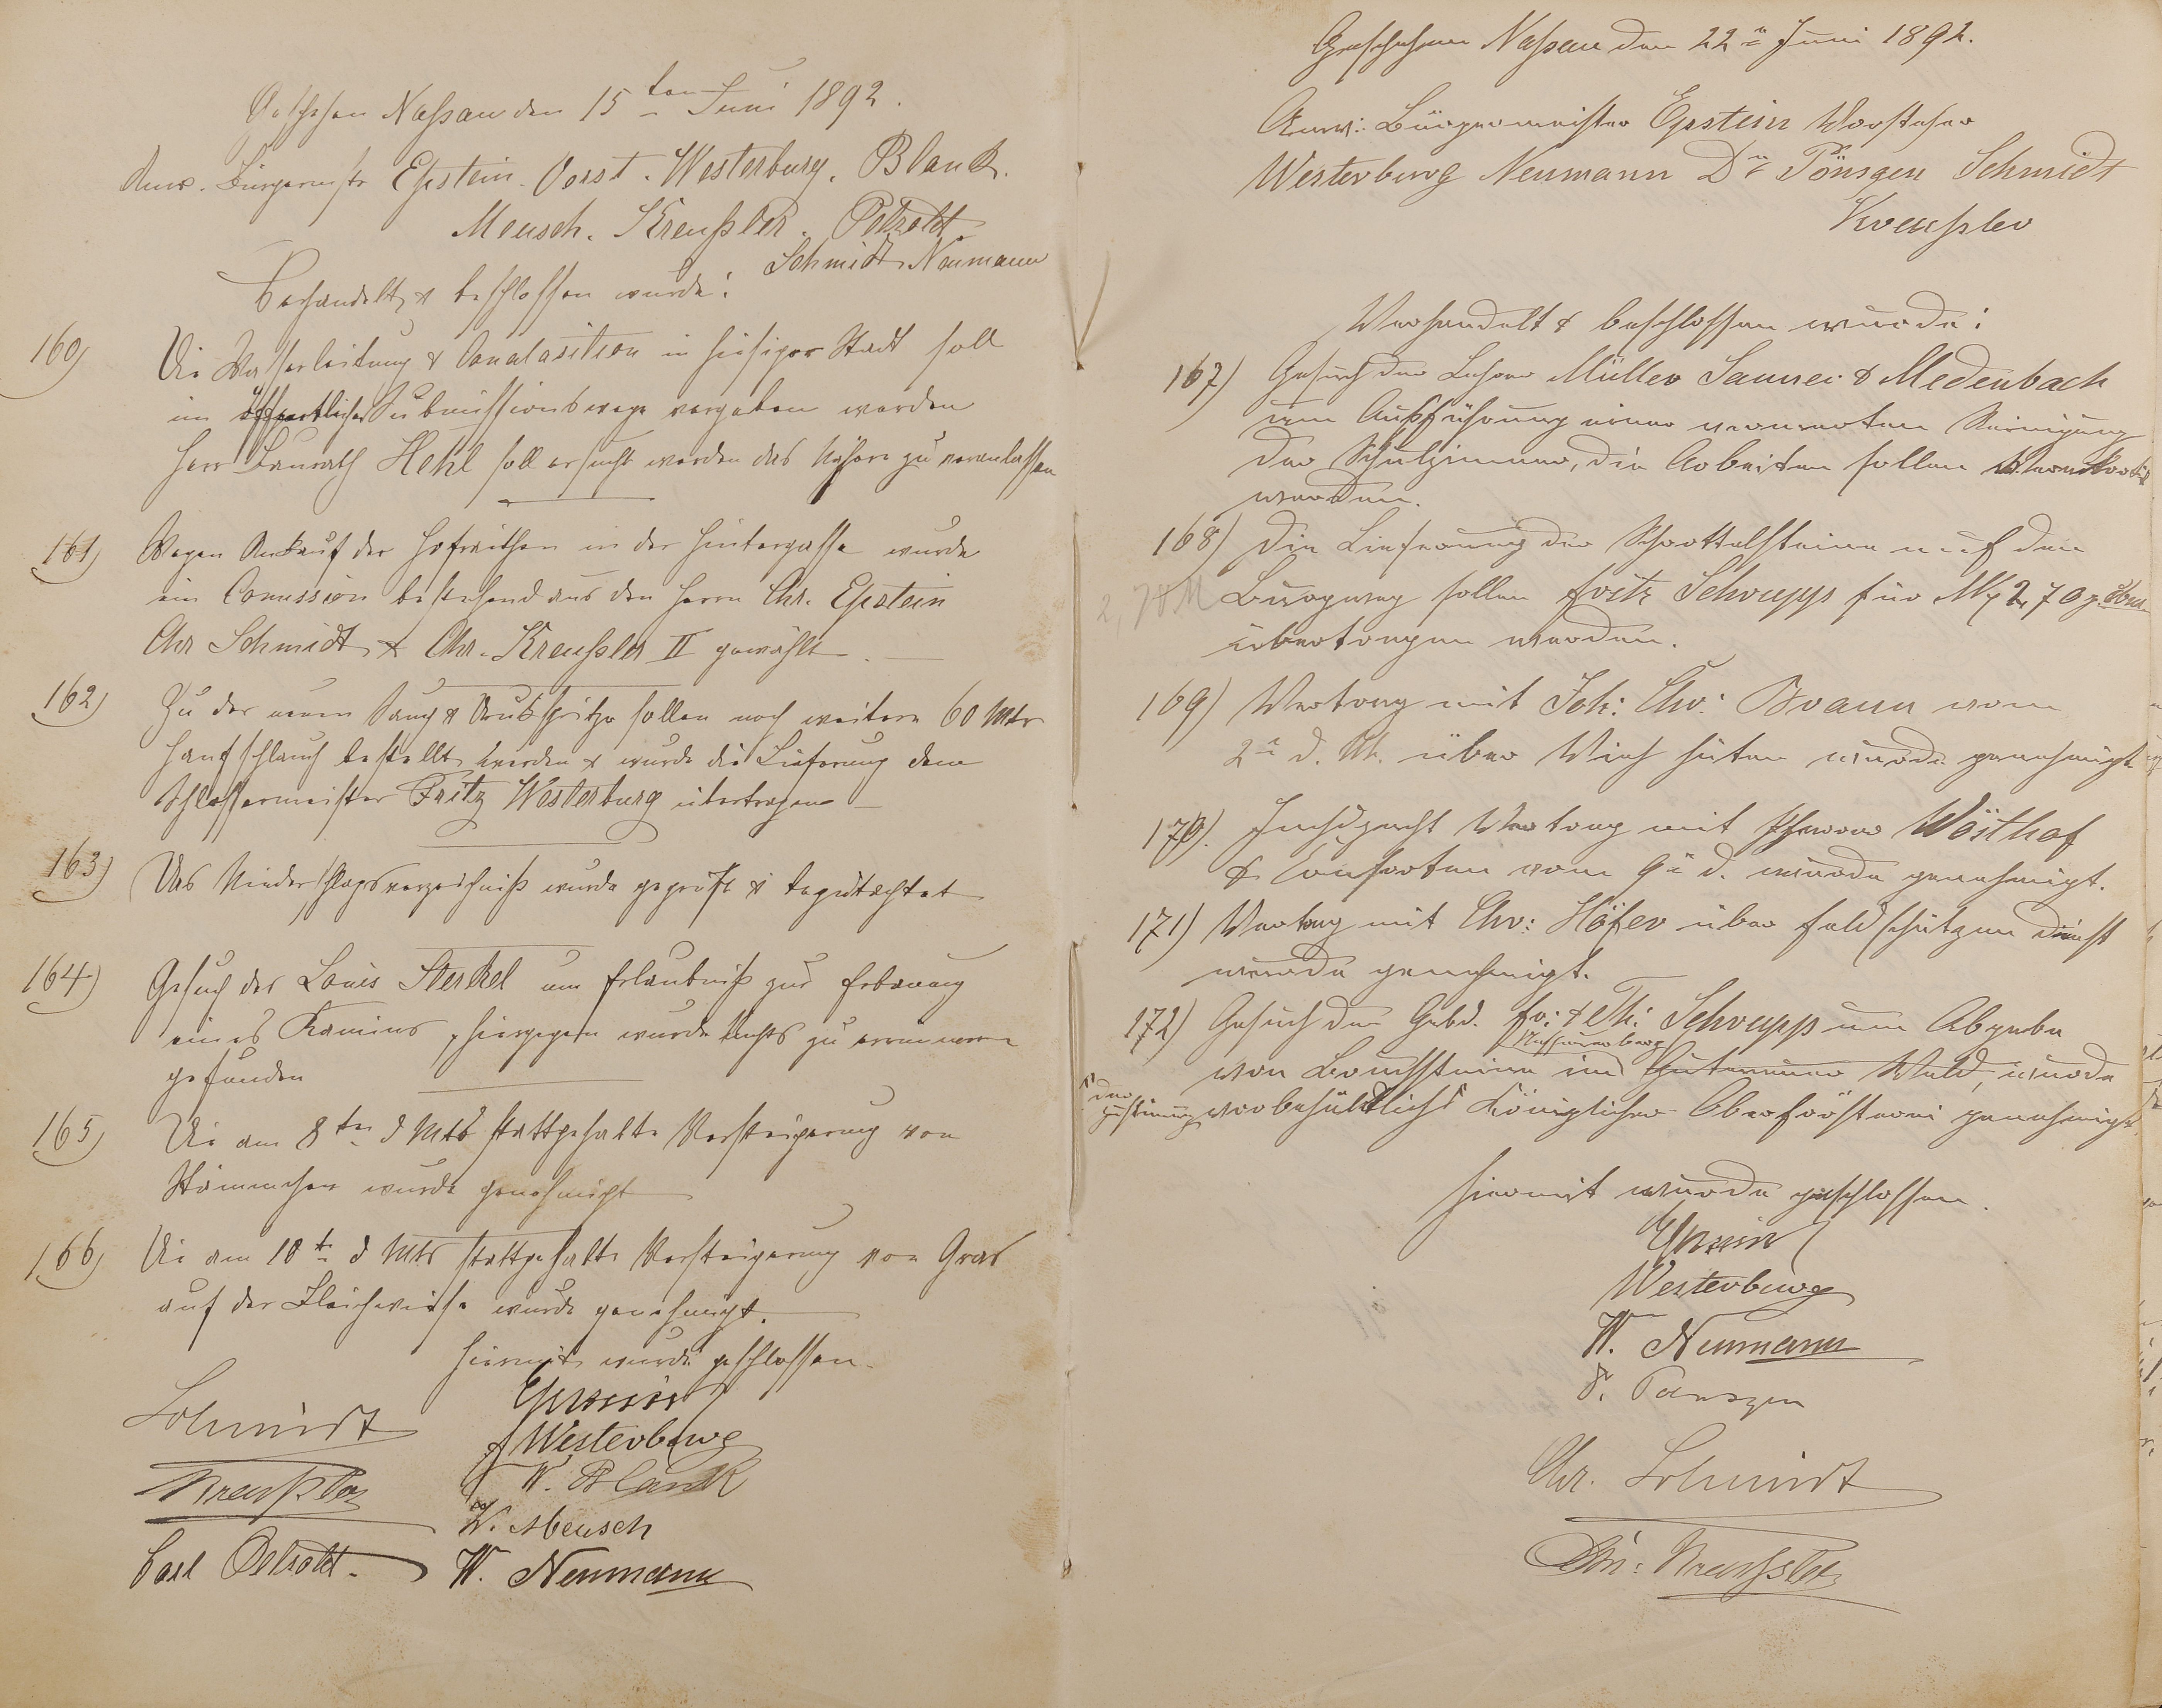 Geschehen Naßau den 15ten Juni 1892.
Anw. Bürgermstr Epstein. Vorst. Westerburg. Blank.
Meusch. Kreußler. Petzoldt.
Schmidt Neumann
Verhandelt & beschlossen wurde:
160) Die Wasserleitung & Canalasition in hiesiger Stadt soll
im öffentlichen Submissionswege vergeben werden
Herr Baurath Hehl soll ersucht werden das Nähere zu veranlassen
161) Wegen Ankauf der Hofraithen in der Hintergasse wurde
ein Comission bestehend aus den Herrn Chr. Epstein
Chr Schmidt & Chr. Kreußler II gewählt.
162) Zu der neuen Saug & Druckspritze sollen noch weitere 60 Mtr
Hanfschlauch bestellt werden & wurde die Lieferung dem
Schlossermeister Fritz Westerburg übertragen
163) Das Niederschlagsverzeichniß wurde geprüft & begutachtet
164) Gesuch des Louis Sterkel um Erlaubniß zur Erbauung
eines Kamins, hiergegen wurde Nichts zu erinnern
gefunden
165) Die am 8ten d Mts stattgehalte Versteigerung von
Stämmchen wurde genehmigt
166) Die am 10t d Mts stattgehalte Versteigerung von Gras
auf der Bleichwiese wurde genehmigt.
Hiermit wurde geschlossen.
Epstein
Schmidt
Westerburg
W. Blank
Kreußler
W. Meusch
Carl Petzoldt.
W. Neumann
Geschehen Naßau den 22n Juni 1892.
Anw: Bürgermeister Epstein Vorsteher
Westerburg Neumann Dr Pönsgen Schmidt
Kreußler
Verhandelt & beschlossen wurde:
167) Gesuch der Lehrer Müller & Medenbach
um Ausführung einer Reinigung
der Schulzimmer, die Arbeiten sollen
werden.
168) Die Lieferung der Schottelsteine auf den
2,70 M
Burgweg sollen Fritz Schrupp für M 2,70 p.
übertragen werden.
169) Vertrag mit Joh: Chr: Braun vom
2n d. M. über Vieh hüten wurde genehmigt
170). Jagdpacht Vertrag mit Wösthof
& Consorten vom 9n d. wurde genehmigt.
171) Vertrag mit Chr: Höfer über Feldschützen dienst
wurde genehmigt.
172) Gesuch der Gebd. Fr: & Th: Schrupp um Abgabe
Nassauerberg
von Bruchsteine im Wald, wurde
der
Zustimmung
vorbehältlich Königlicher Oberförsterei genehmigt.
Hiermit wurde geschlossen.
Epstein
Westerburg
W. Neumann
Dr. Pönsgen
Chr. Schmidt
Chr: Kreußler